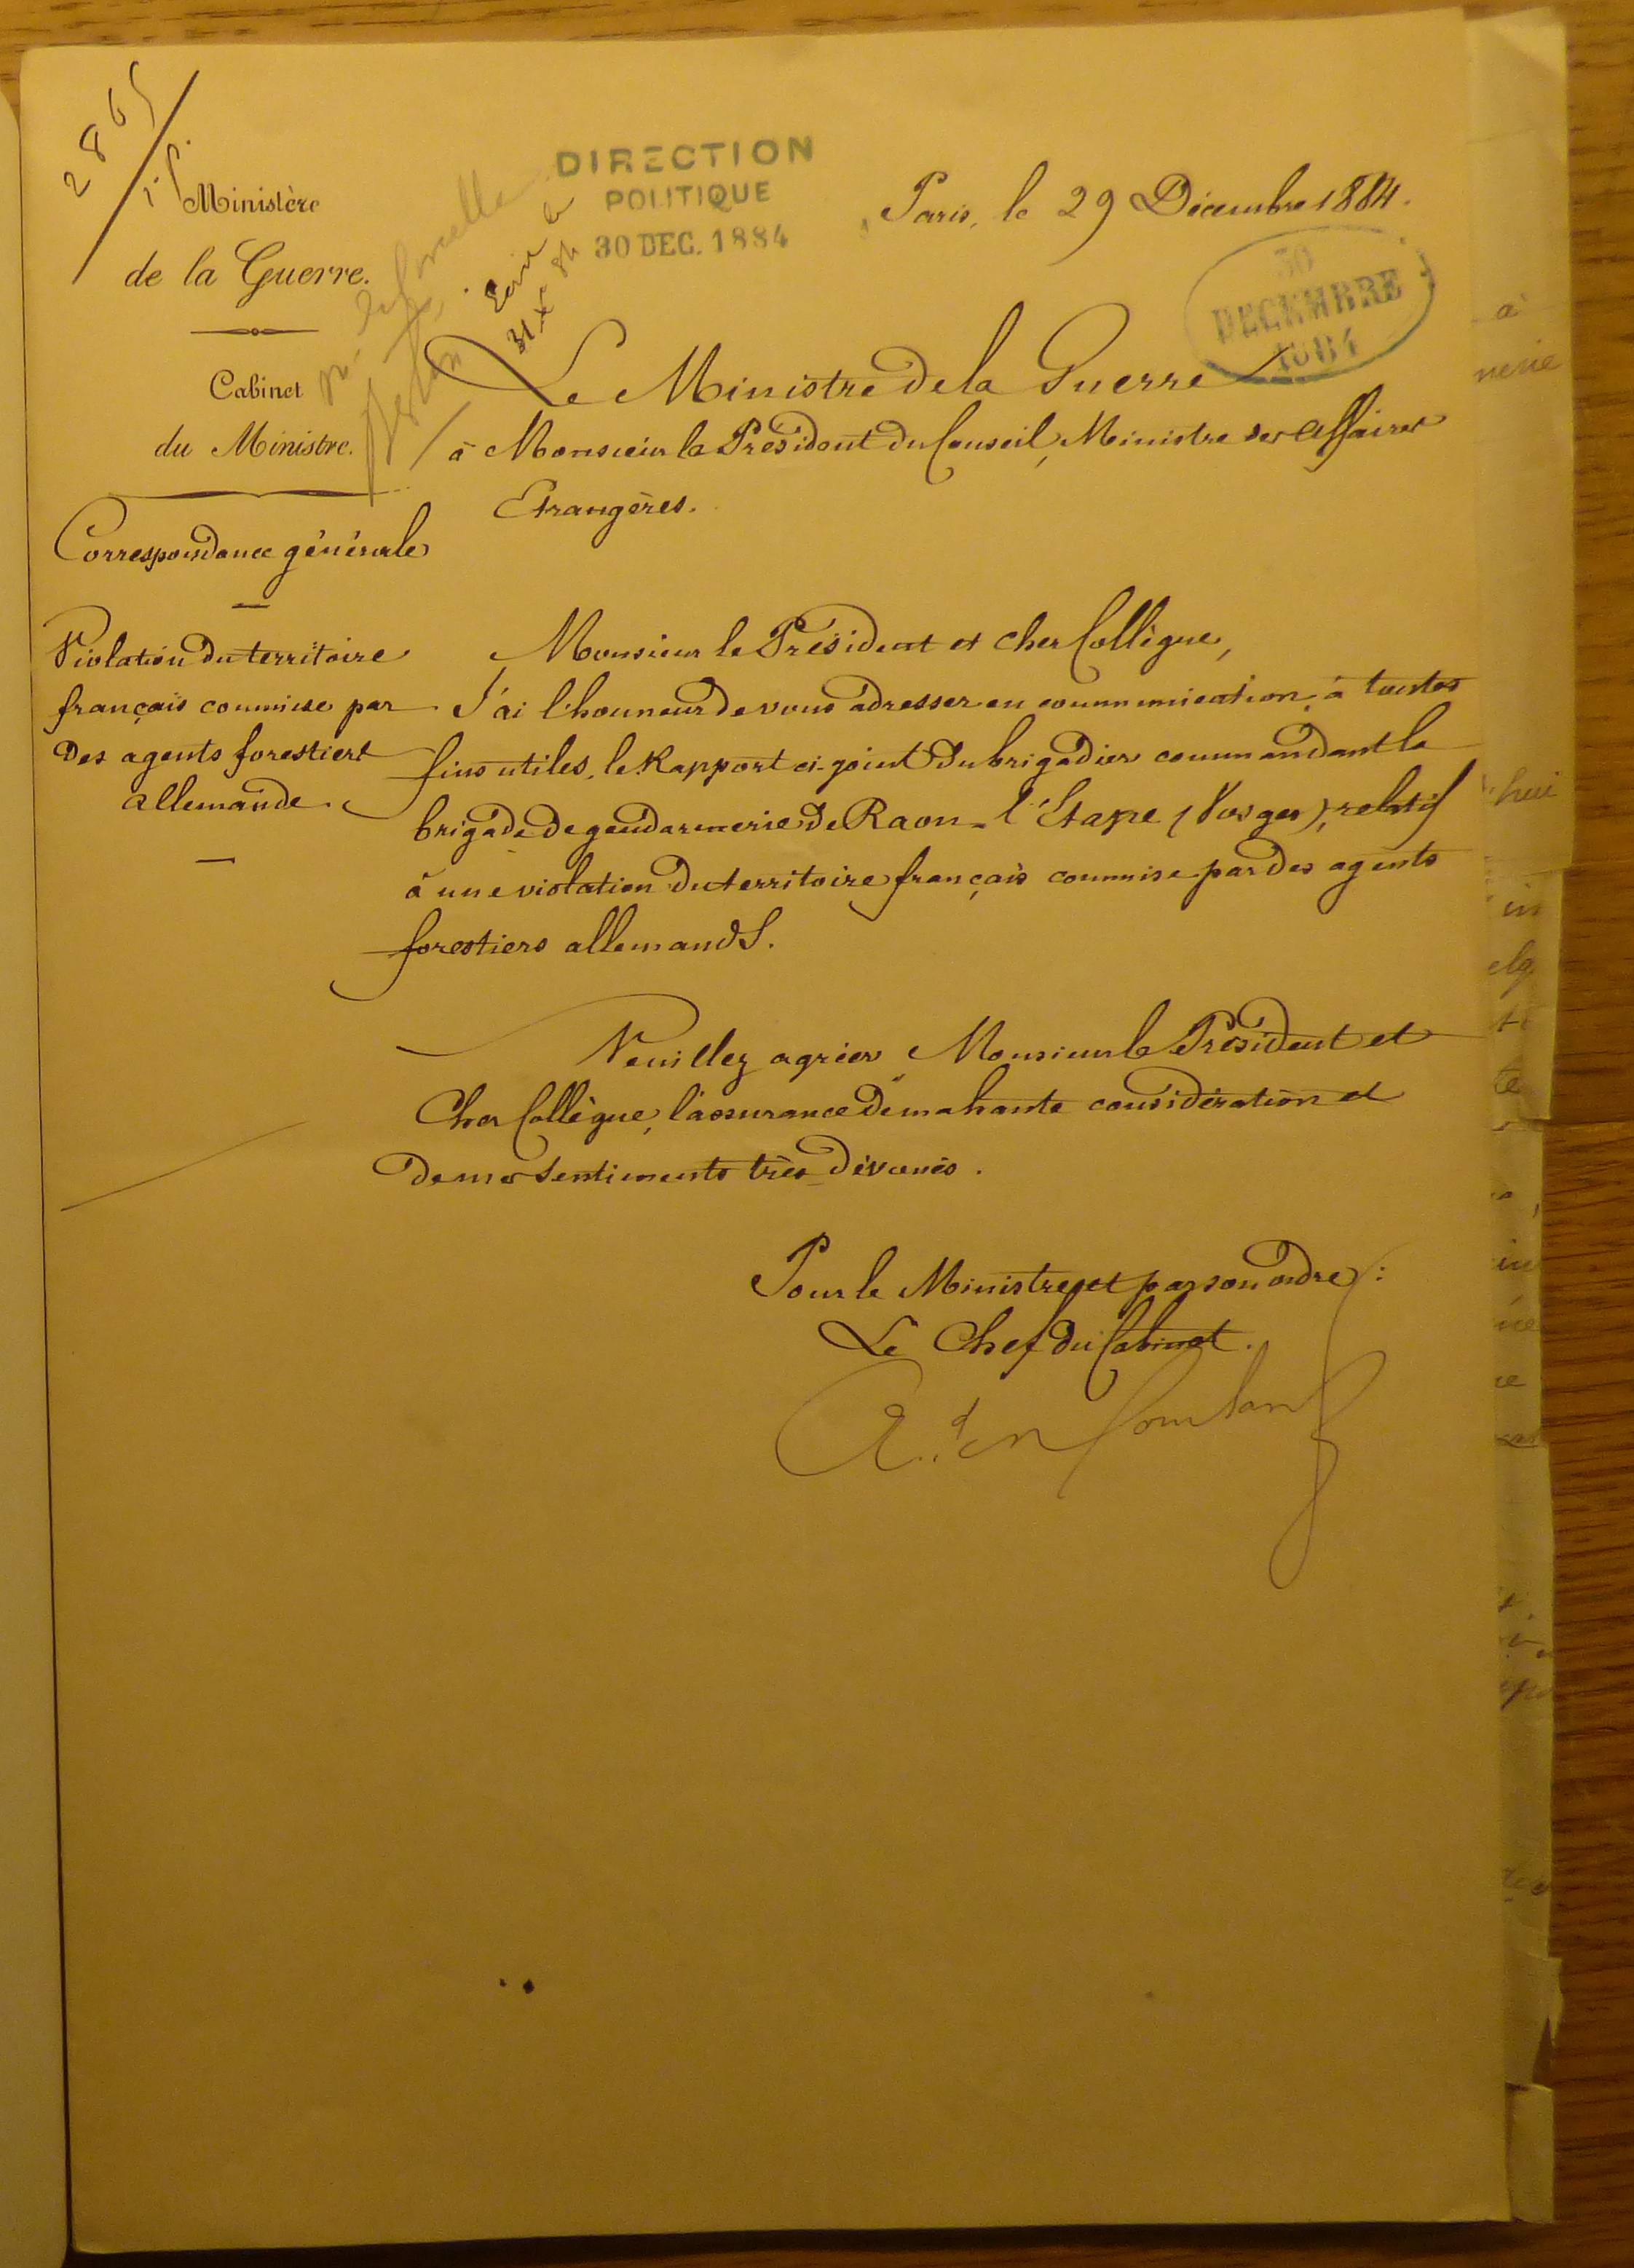 2865
DIRECTION
POLITIQUE
30 DEC. 1884
Ministère
de la Guerre.
Cabinet
du Ministre.
Correspondance générale
Violation du territoire
français commise par
des agents forestiers
allemands.
Paris, le 29 Décembre 1884.
30
DECEMBRE
1884
Ecrit le
31 Xe 84
Le Ministre de la Guerre
à Monsieur le Président du Conseil, Ministre des Affaires
Etrangères.
Monsieur le Président et cher Collègue,
J'ai l'honneur de vous adresser en communication, à toutes
fins utiles, le Rapport ci-joint du brigadier commandant la
brigade de gendarmerie de Raon-l'Etape (Vosges), relatif
à une violation du territoire français commise par des agents
forestiers allemands.
Veuillez agréer, Monsieur le Président et
Cher Collègue, l'assurance de ma haute considération et
de mes sentiments très-dévoués.
Pour le Ministre et par son ordre:
Le Chef du Cabinet.